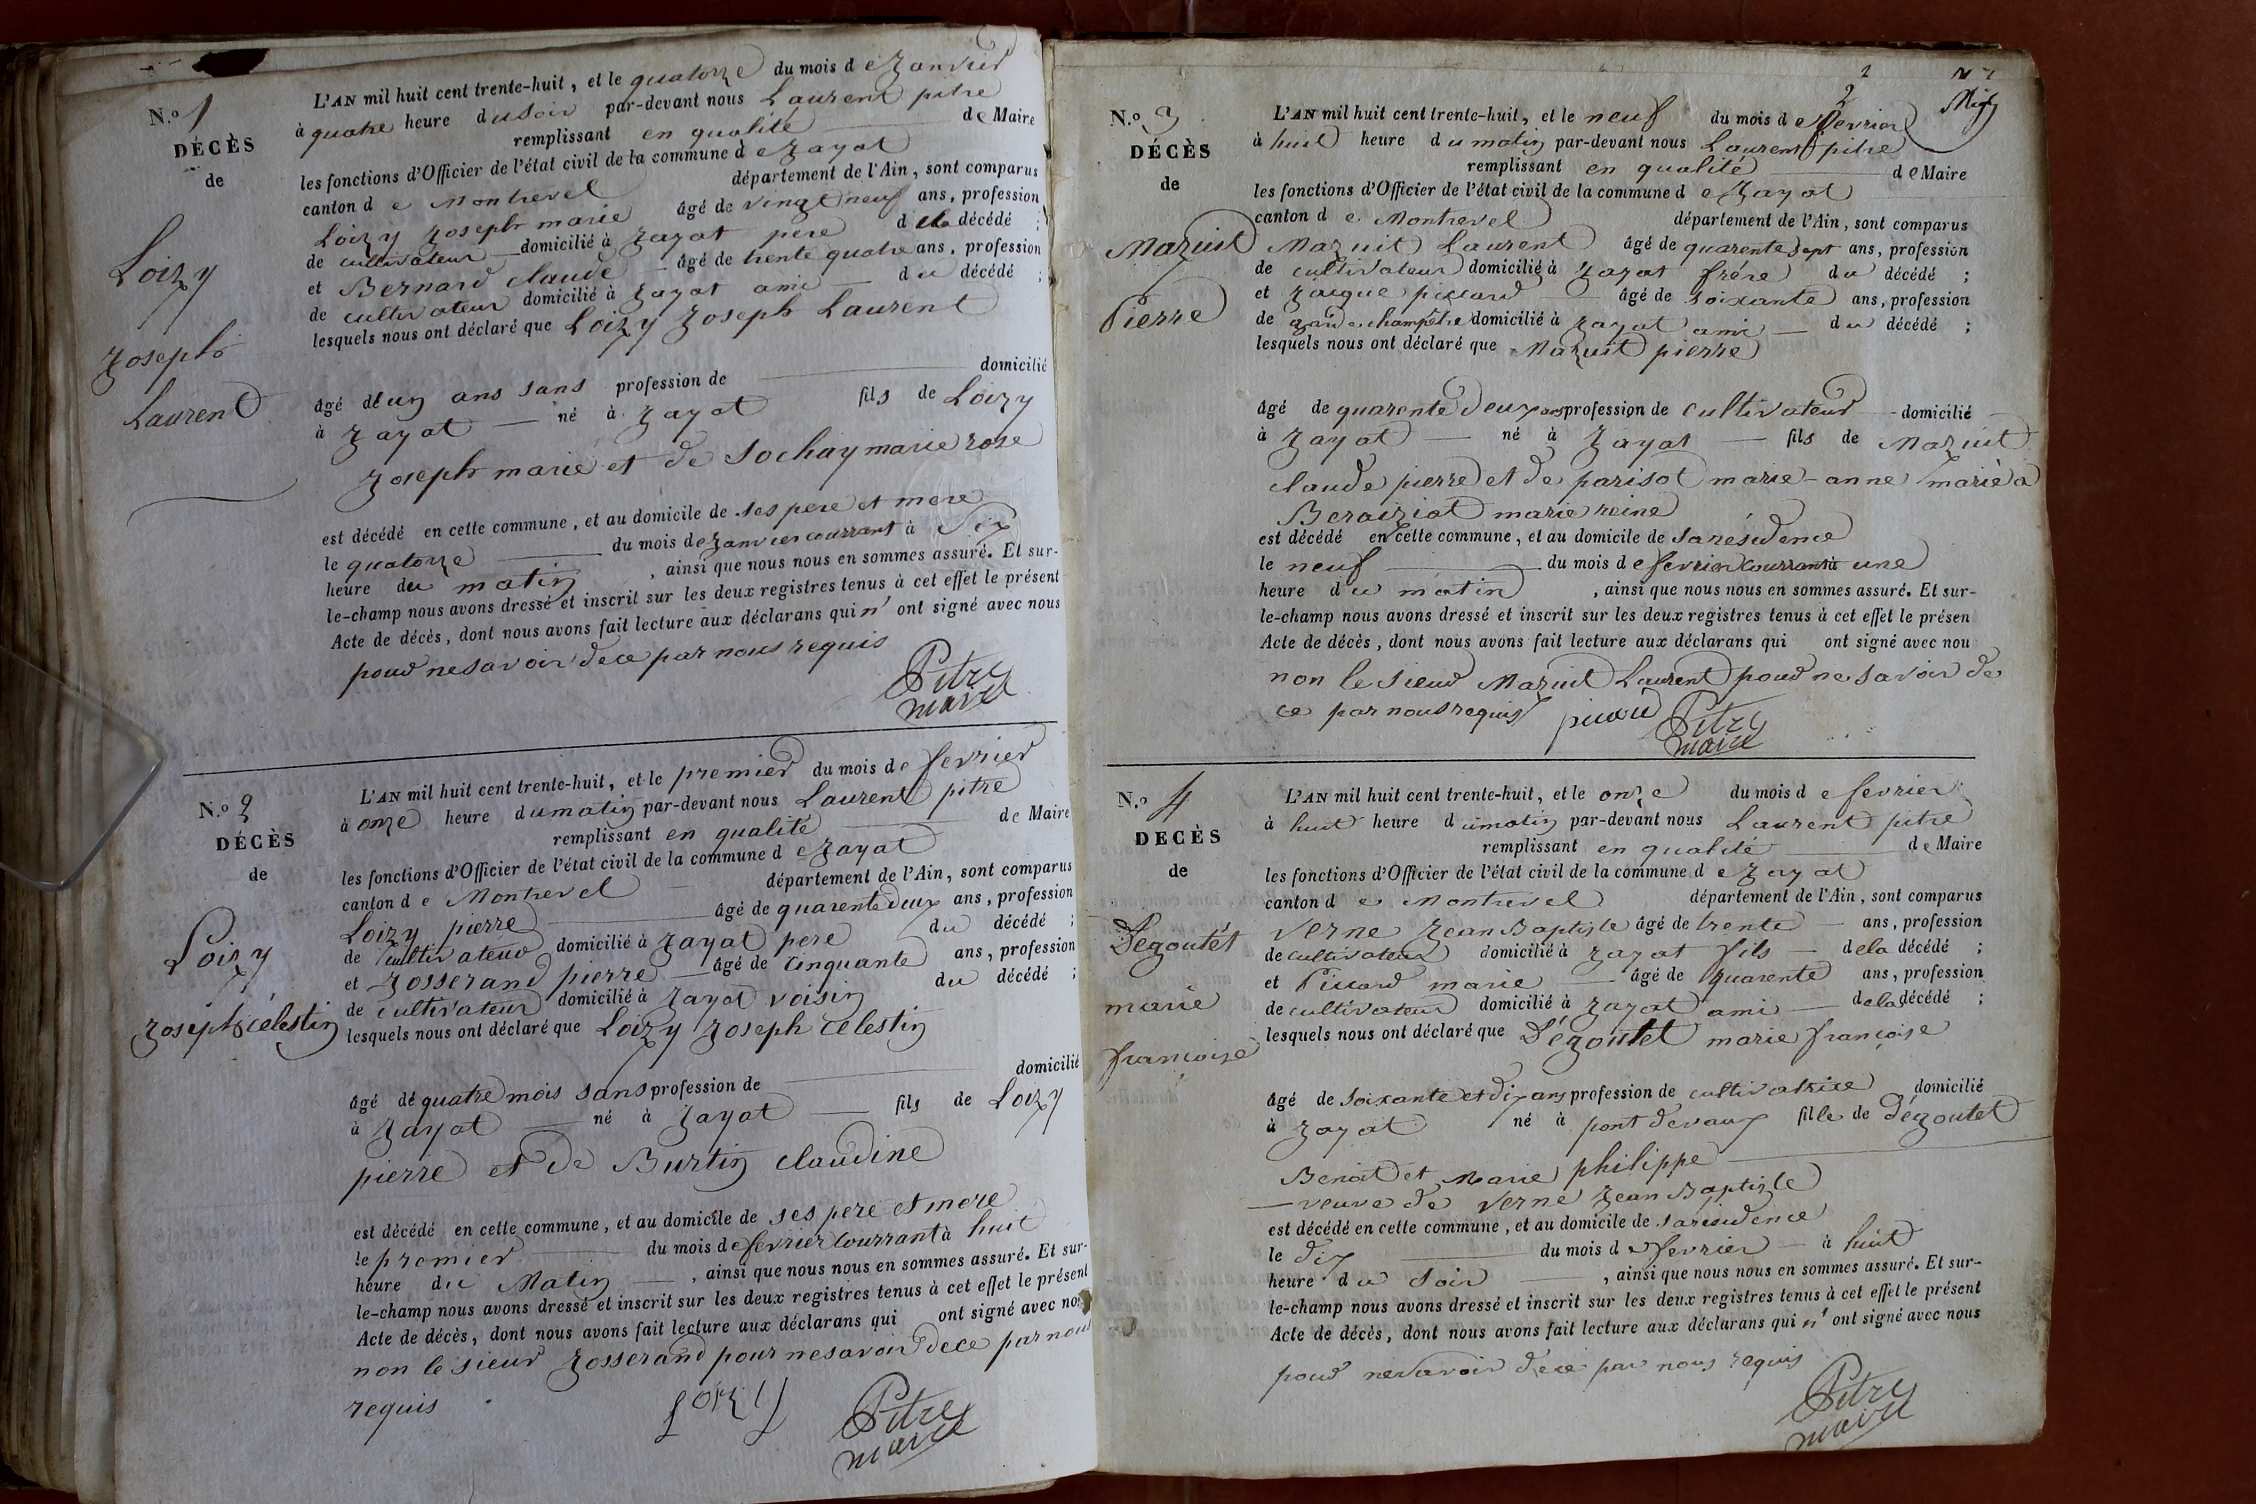 N.º 1
DÉCÈS
de
Loizy
Joseph
Laurent
L'AN mil huit cent trente-huit, et le quatorze du mois de Janvier
à quatre heure du soir par-devant nous Laurent pitre
remplissant en qualité de Maire
les fonctions d'Officier de l'état civil de la commune de Jayat
canton de Montrevel département de l'Ain, sont comparus
Loizy Joseph marie âgé de vingt neuf ans, profession
de cultivateur domicilié à Jayat pere du décédé ;
et Bernard claude âgé de trente quatre ans, profession
de cultivateur domicilié à Jayat ami du décédé ;
lesquels nous ont déclaré que Loizy Joseph Laurent
âgé de un ans sans profession de domicilié
à Jayat né à Jayat fils de Loizy
Joseph marie et de Sochay marie rose
est décédé en cette commune, et au domicile de ses pere et mere
le quatorze du mois de Janvier courrant à dix
heure du matin, ainsi que nous nous en sommes assuré. Et sur-
le-champ nous avons dressé et inscrit sur les deux registres tenus à cet effet le présent
Acte de décès, dont nous avons fait lecture aux déclarans qui n' ont signé avec nous
pour ne savoir de ce par nous requis
Pitre
maire
N.º 2
DÉCÈS
de
Loizy
Joseph célestin
L'AN mil huit cent trente-huit, et le premier du mois de fevrier
à onze heure du matin par-devant nous Laurent pitre
remplissant en qualité de Maire
les fonctions d'Officier de l'état civil de la commune de Jayat
canton de Montrevel département de l'Ain, sont comparus
Loizy pierre âgé de quarente deux ans, profession
de cultivateur domicilié à Jayat pere du décédé ;
et Josserand pierre âgé de cinquante ans, profession
de cultivateur domicilié à Jayat voisin du décédé ;
lesquels nous ont déclaré que Loizy Joseph celestin
âgé de quatre mois sans profession de domicilié
à Jayat né à Jayat fils de Loizy
pierre et de Burtin claudine
est décédé en cette commune, et au domicile de ses pere et mere
le premier du mois de fevrier courrant à huit
heure du Matin, ainsi que nous nous en sommes assuré. Et sur-
le-champ nous avons dressé et inscrit sur les deux registres tenus à cet effet le présent
Acte de décès, dont nous avons fait lecture aux déclarans qui ont signé avec nou
non le sieur Josserand pour ne savoir de ce par nous
requis
Loizy
Pitre
maire
2
N.º 3
DÉCÈS
de
Mazuit
Pierre
L'AN mil huit cent trente-huit, et le neuf du mois de fevrier
à huit heure du matin par-devant nous Laurent pitre
remplissant en qualité de Maire
les fonctions d'Officier de l'état civil de la commune de Jayat
canton de Montrevel département de l'Ain, sont comparus
Mazuit Laurent âgé de quarente sept ans, profession
de cultivateur domicilié à Jayat frére du décédé ;
et Jacque piccard âgé de soixante ans, profession
de garde champêtre domicilié à Jayat ami du décédé ;
lesquels nous ont déclaré que Mazuit pierre
âgé de quarente deux ans profession de cultivateur domicilié
à Jayat né à Jayat fils de Mazuit
claude pierre et de parisot marie-anne marié a
Beraiziat marie reine
est décédé en cette commune, et au domicile de sa résidence
le neuf du mois de fevrier courrant à une
heure du matin, ainsi que nous nous en sommes assuré. Et sur-
le-champ nous avons dressé et inscrit sur les deux registres tenus à cet effet le présen
Acte de décès, dont nous avons fait lecture aux déclarans qui ont signé avec nou
non le sieur Mazuit Laurent pour ne savoir de
ce par nous requis
Pitre
maire
N.º 4
DECÈS
de
Dégoutét
marie
françoise
L'AN mil huit cent trente-huit, et le onze du mois de fevrier
à huit heure du matin par-devant nous Laurent pitre
remplissant en qualité de Maire
les fonctions d'Officier de l'état civil de la commune de Jayat
canton de Montrevel département de l'Ain, sont comparus
Verne Jean Baptiste âgé de trente ans, profession
de cultivateur domicilié à Jayat fils de la décédé ;
et Piccard marie âgé de quarente ans, profession
de cultivateur domicilié à Jayat ami de la décédé ;
lesquels nous ont déclaré que Dégoutet marie françoise
âgé de soixante et dix ans profession de cultivatrice domicilié
à Jayat né à pont devaux fille de Dégoutet
Benoit et Marie philippe
veuve de Verne Jean Baptiste
est décédé en cette commune, et au domicile de sa residence
le dix du mois de fevrier à huit
heure du soir, ainsi que nous nous en sommes assuré. Et sur-
le-champ nous avons dressé et inscrit sur les deux registres tenus à cet effet le présent
Acte de décès, dont nous avons fait lecture aux déclarans qui n' ont signé avec nous
pour ne savoir de ce par nous requis
Pitre
maire